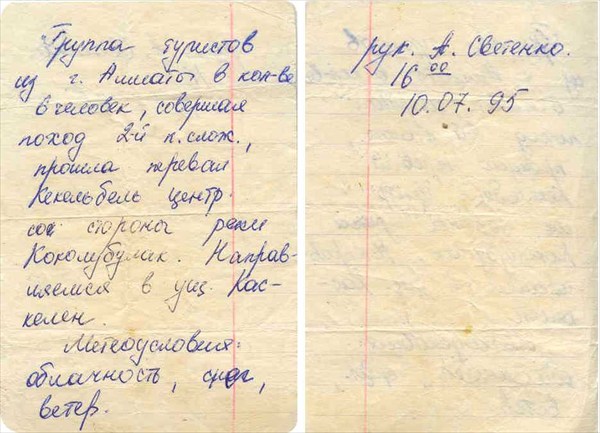 Группа туристов
из г. Алматы в кол-ве
6 человек, совершая
поход 2й к.слож.,
прошла перевал
Кекельбель центр.
со стороны реки
Кокозубулак. Направ-
ляемся в ущ. Кас-
келен.
Метеоусловия:
облачность, снег,
ветер.
рук. А. Светенко.
16 00
10.07.95